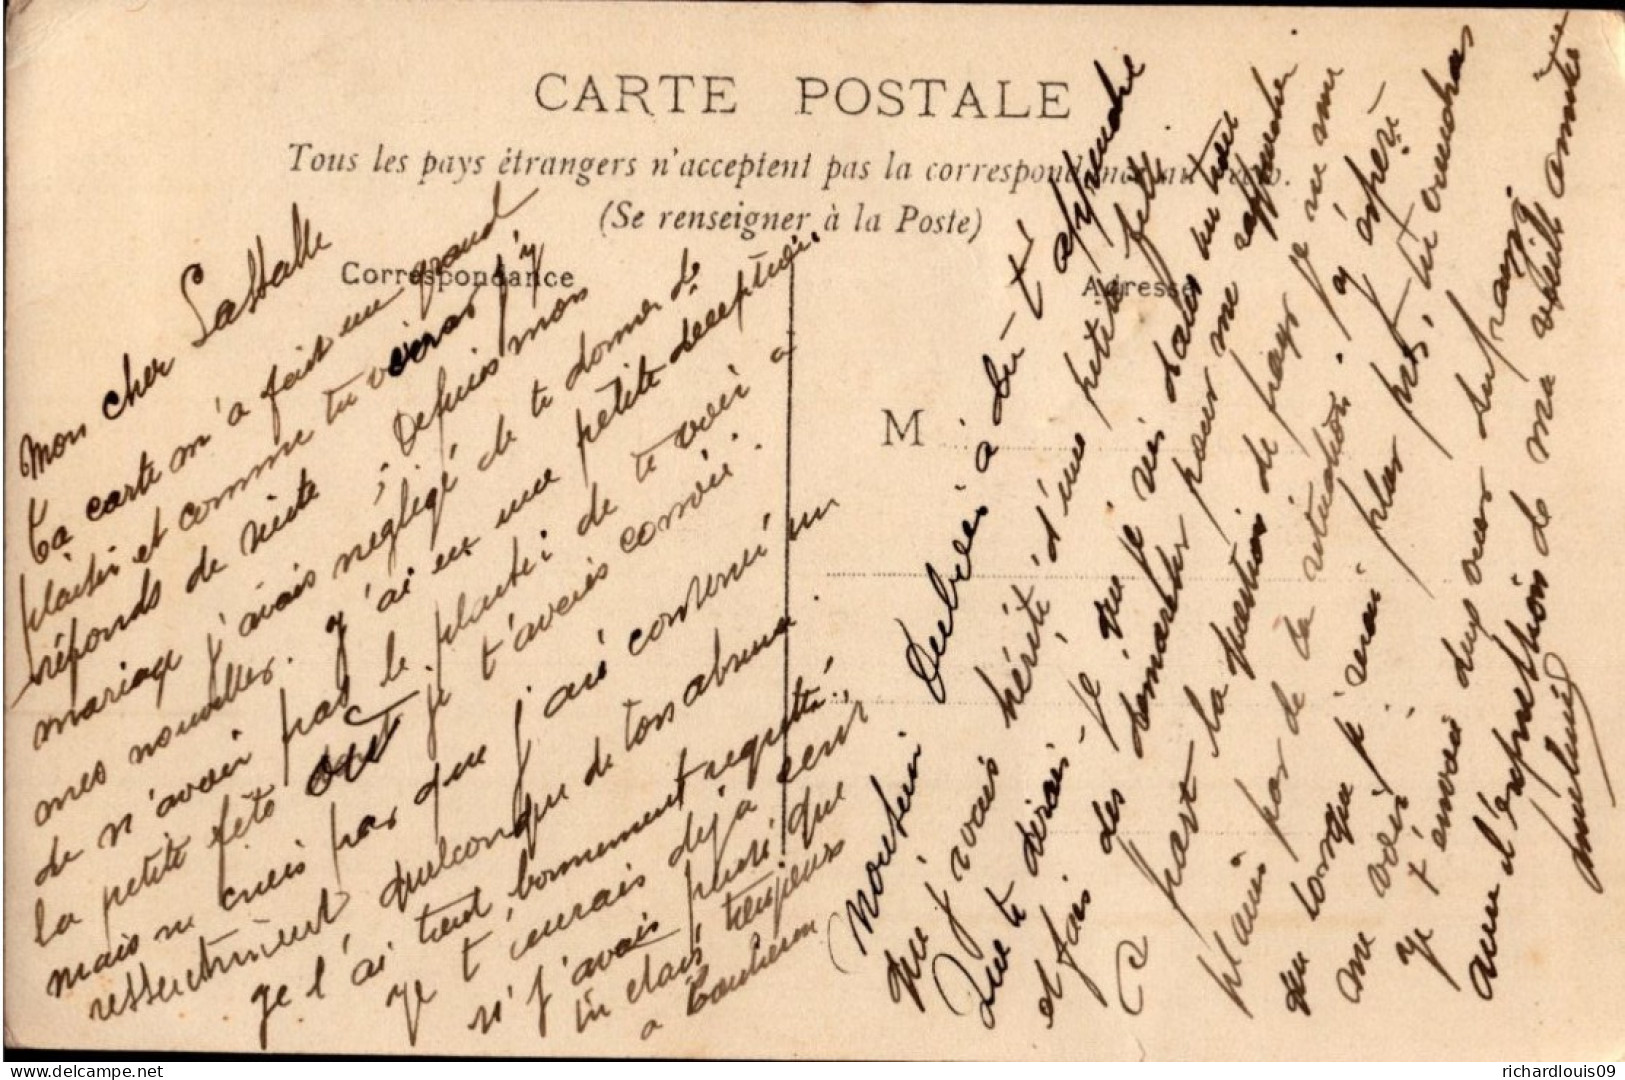 CARTE POSTALE
Tous les pays étrangers n'acceptent pas la correspondance au recto.
(Se renseigner à la Poste)
Correspondance
Adresse
M
Mon cher Lastalle
Ta carte m'a fait un grand
plaisir et comme tu verras j'y
réponds de suite ; Depuis mon
mariage j'avais négligé de te donner de
mes nouvelles. j'ai eu une petite deception
de n'avoir pas le plaisir de te voir à
la petite fête et je t'avais convié.
mais ne crois pas que j'ai conservé un
ressentiment quelconque de ton absence.
je l'ai tout bonnement regretté.
je t'aurais déjà écrit
si j'avais pensé que
tu étais toujours
a
Monsieur Dubreu a dû t'apprendre
que j'avais hérité d'une petite fille
Que te dirais-je que je vis dans un trou
et fais des démarches pour me rapprocher
A part la question de pays je ne me
plains pas de la situation. j'espère
que lorsque je serai plus près, tu viendras
me voir.
Je t'envoie deux vues de
avec l'expression de ma vieille amitié